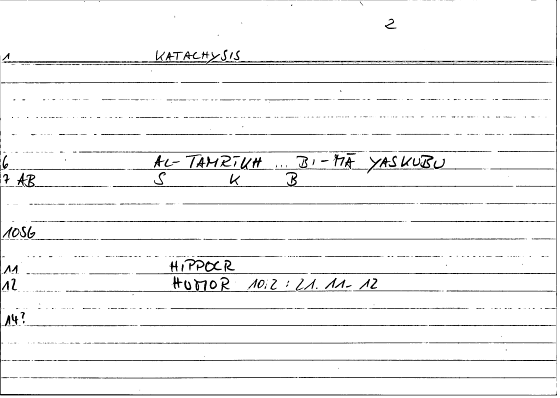 2
1 KATACHYSIS
6 AL-TAMRĪKH ... BI-MĀ YASKUBU
7 AB S K B
1056
11 HIPPOCR
12 HUMOR 10.2 : 21. 11-12
14?